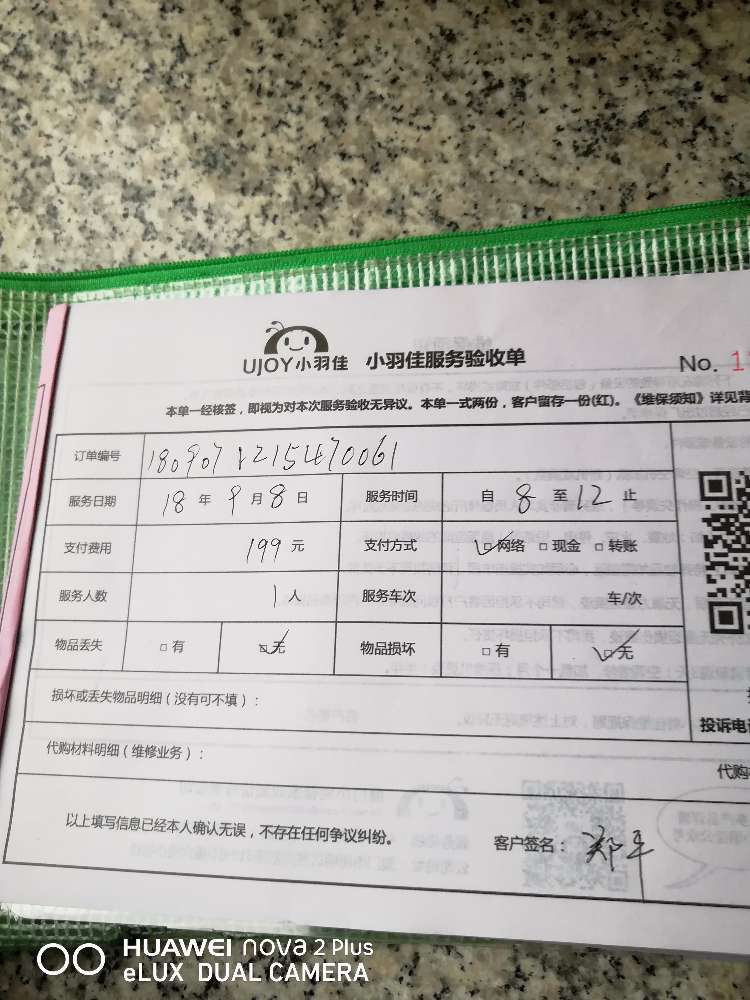 UJOY小羽佳 小羽佳服务验收单
No. 1
本单一经核签，即视为对本次服务验收无异议。本单一式两份，客户留存一份(红)。《维保须知》详见背
订单编号 1809071215470061
服务日期 18 年 9 月 8 日 服务时间 自 8 至 12 止
支付费用 199 元 支付方式 □网络 □现金 □转账
服务人数 1 人 服务车次 车/次
物品丢失 □有 □无 物品损坏 □有 □无
损坏或丢失物品明细（没有可不填）：
投诉电
代购材料明细（维修业务）：
代购
以上填写信息已经本人确认无误，不存在任何争议纠纷。
客户签名： 郑平
HUAWEI nova 2 Plus
eLUX DUAL CAMERA